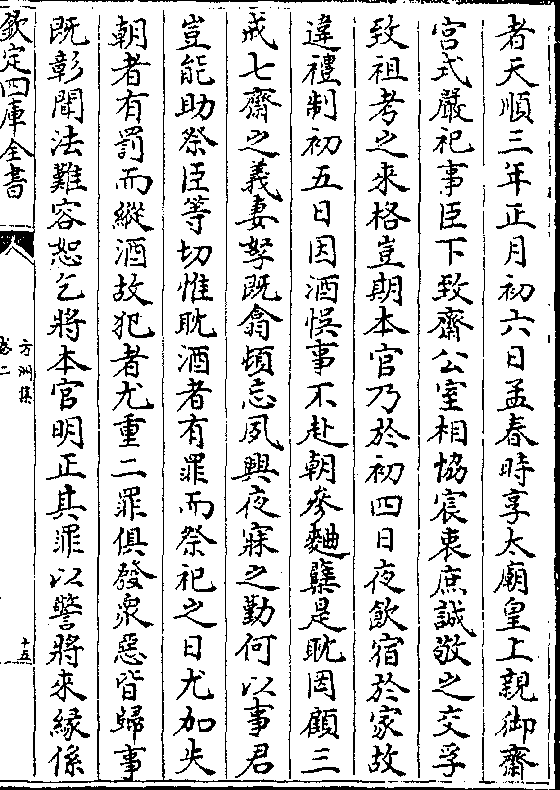 者天順三年正月初六日孟春時享太廟皇上親御齋
宮式嚴祀事臣下致齋公室相協宸衷庶誠敬之交孚
致祖考之来格豈期本官乃於初四日夜飲宿於家故
違禮制初五日因酒悞事不赴朝參麯糵是耽罔顧三
戒七齋之義妻孥既翕頓忘夙興夜寐之勤何以事君
豈能助祭臣等切惟耽酒者有罪而祭祀之日尤加失
朝者有罰而縱酒故犯者尤重二罪俱發衆惡皆歸事
既彰聞法難容恕乞將本官明正其罪以警將來緣係
欽定四庫全書
方洲集
卷二
十五